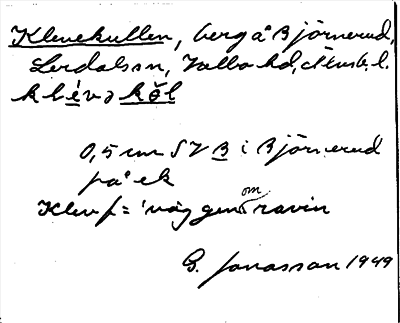 Klevekullen, berg å Björnerud,
Lerdalssn, Valbo hd, Älvsb. l.
klévə kŏl
0,5 cm SV B i Björnerud
på ek
Klev f = 'väg genom ravin
G. Jonasson 1949